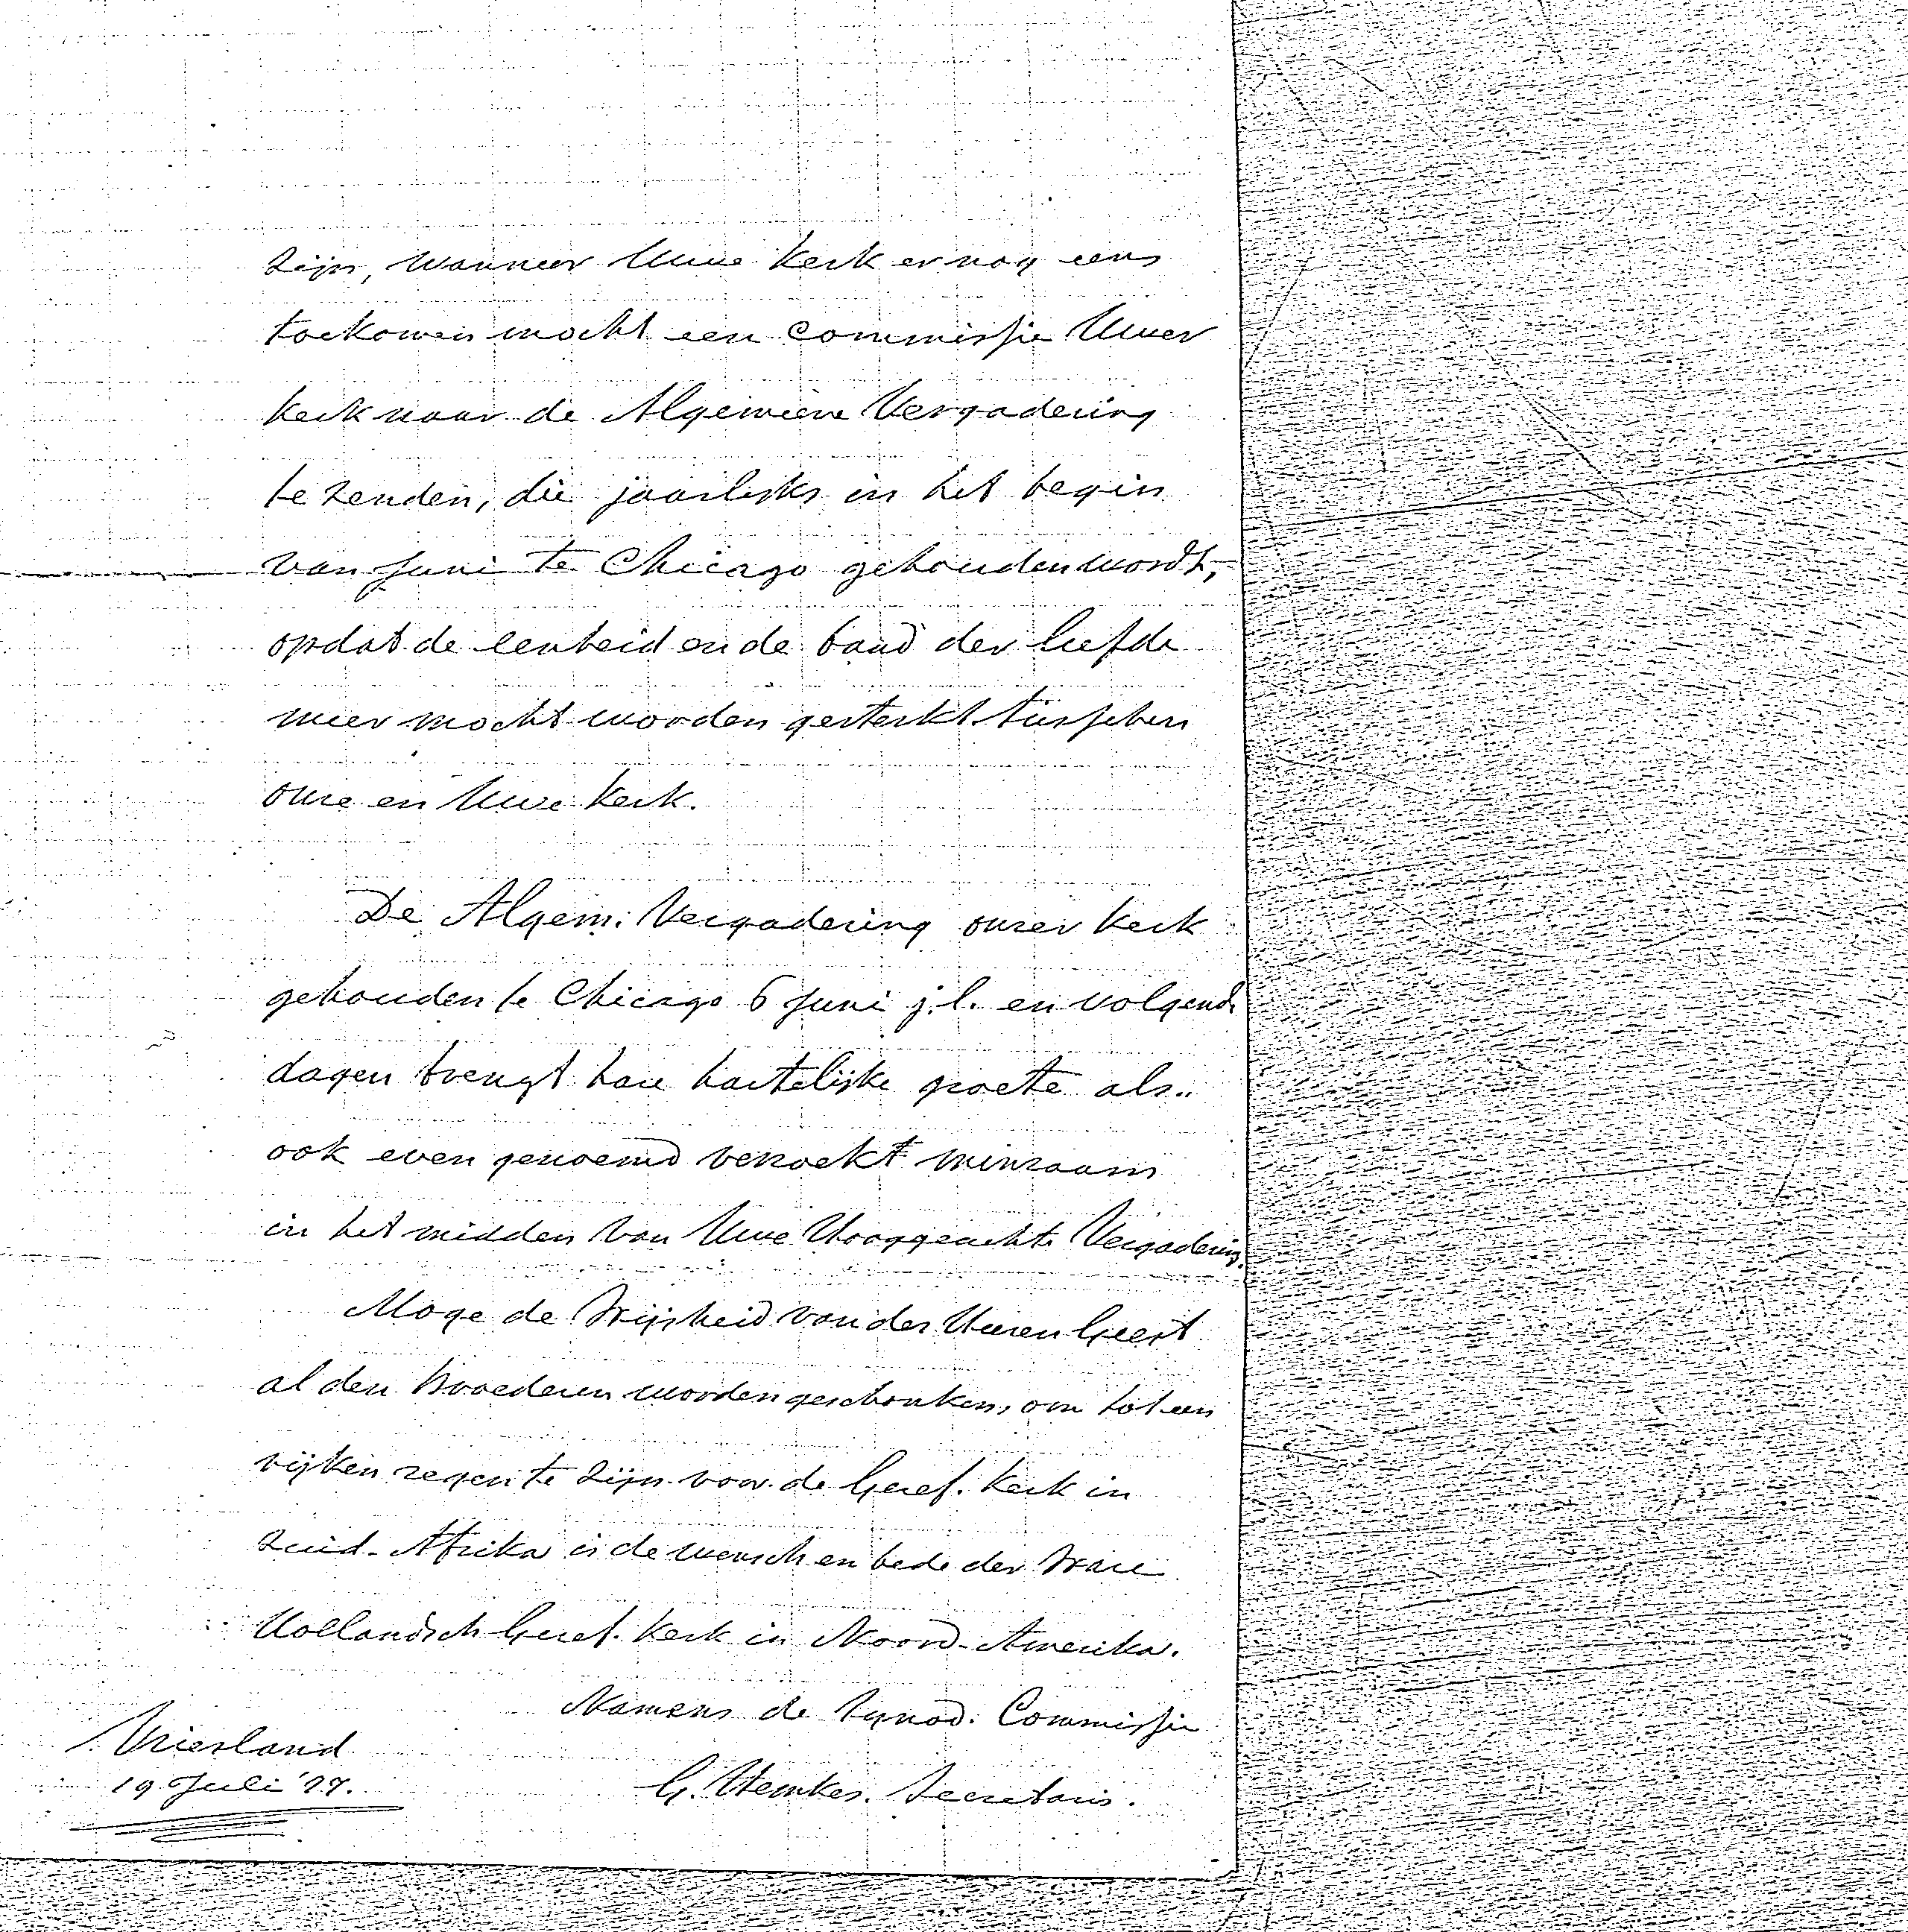 zijn, wanneer Uwe Kerk er nog eens
toekomen mocht een commissie Uwer
Kerk naar de Algemeene Vergadering
te zenden, die jaarlijks in het begin
van Juni te Chicago gehouden wordt,
opdat de eenheid en de band der liefde
meer mocht worden gesterkt tusschen
onze en Uwe Kerk.
De Algem. Vergadering onzer Kerk
gehouden te Chicago 6 Juni j.l. en volgende
dagen brengt hare hartelijke groete als..
ook even genoemd verzoekt minzaam
in het midden van Uwe Hooggeachte Vergadering.
Moge de Wijsheid van des Heeren Geest
al den broederen worden geschonken, om tot een
rijken zegen te zijn voor de Geref. Kerk in
Zuid-Afrika is de wensch en bede der Ware
Hollandsch Geref. Kerk in Noord-Amerika.
Namens de Synod. Commissie
Vriesland
19 Juli '77.
G. Hemkes. Secretaris.